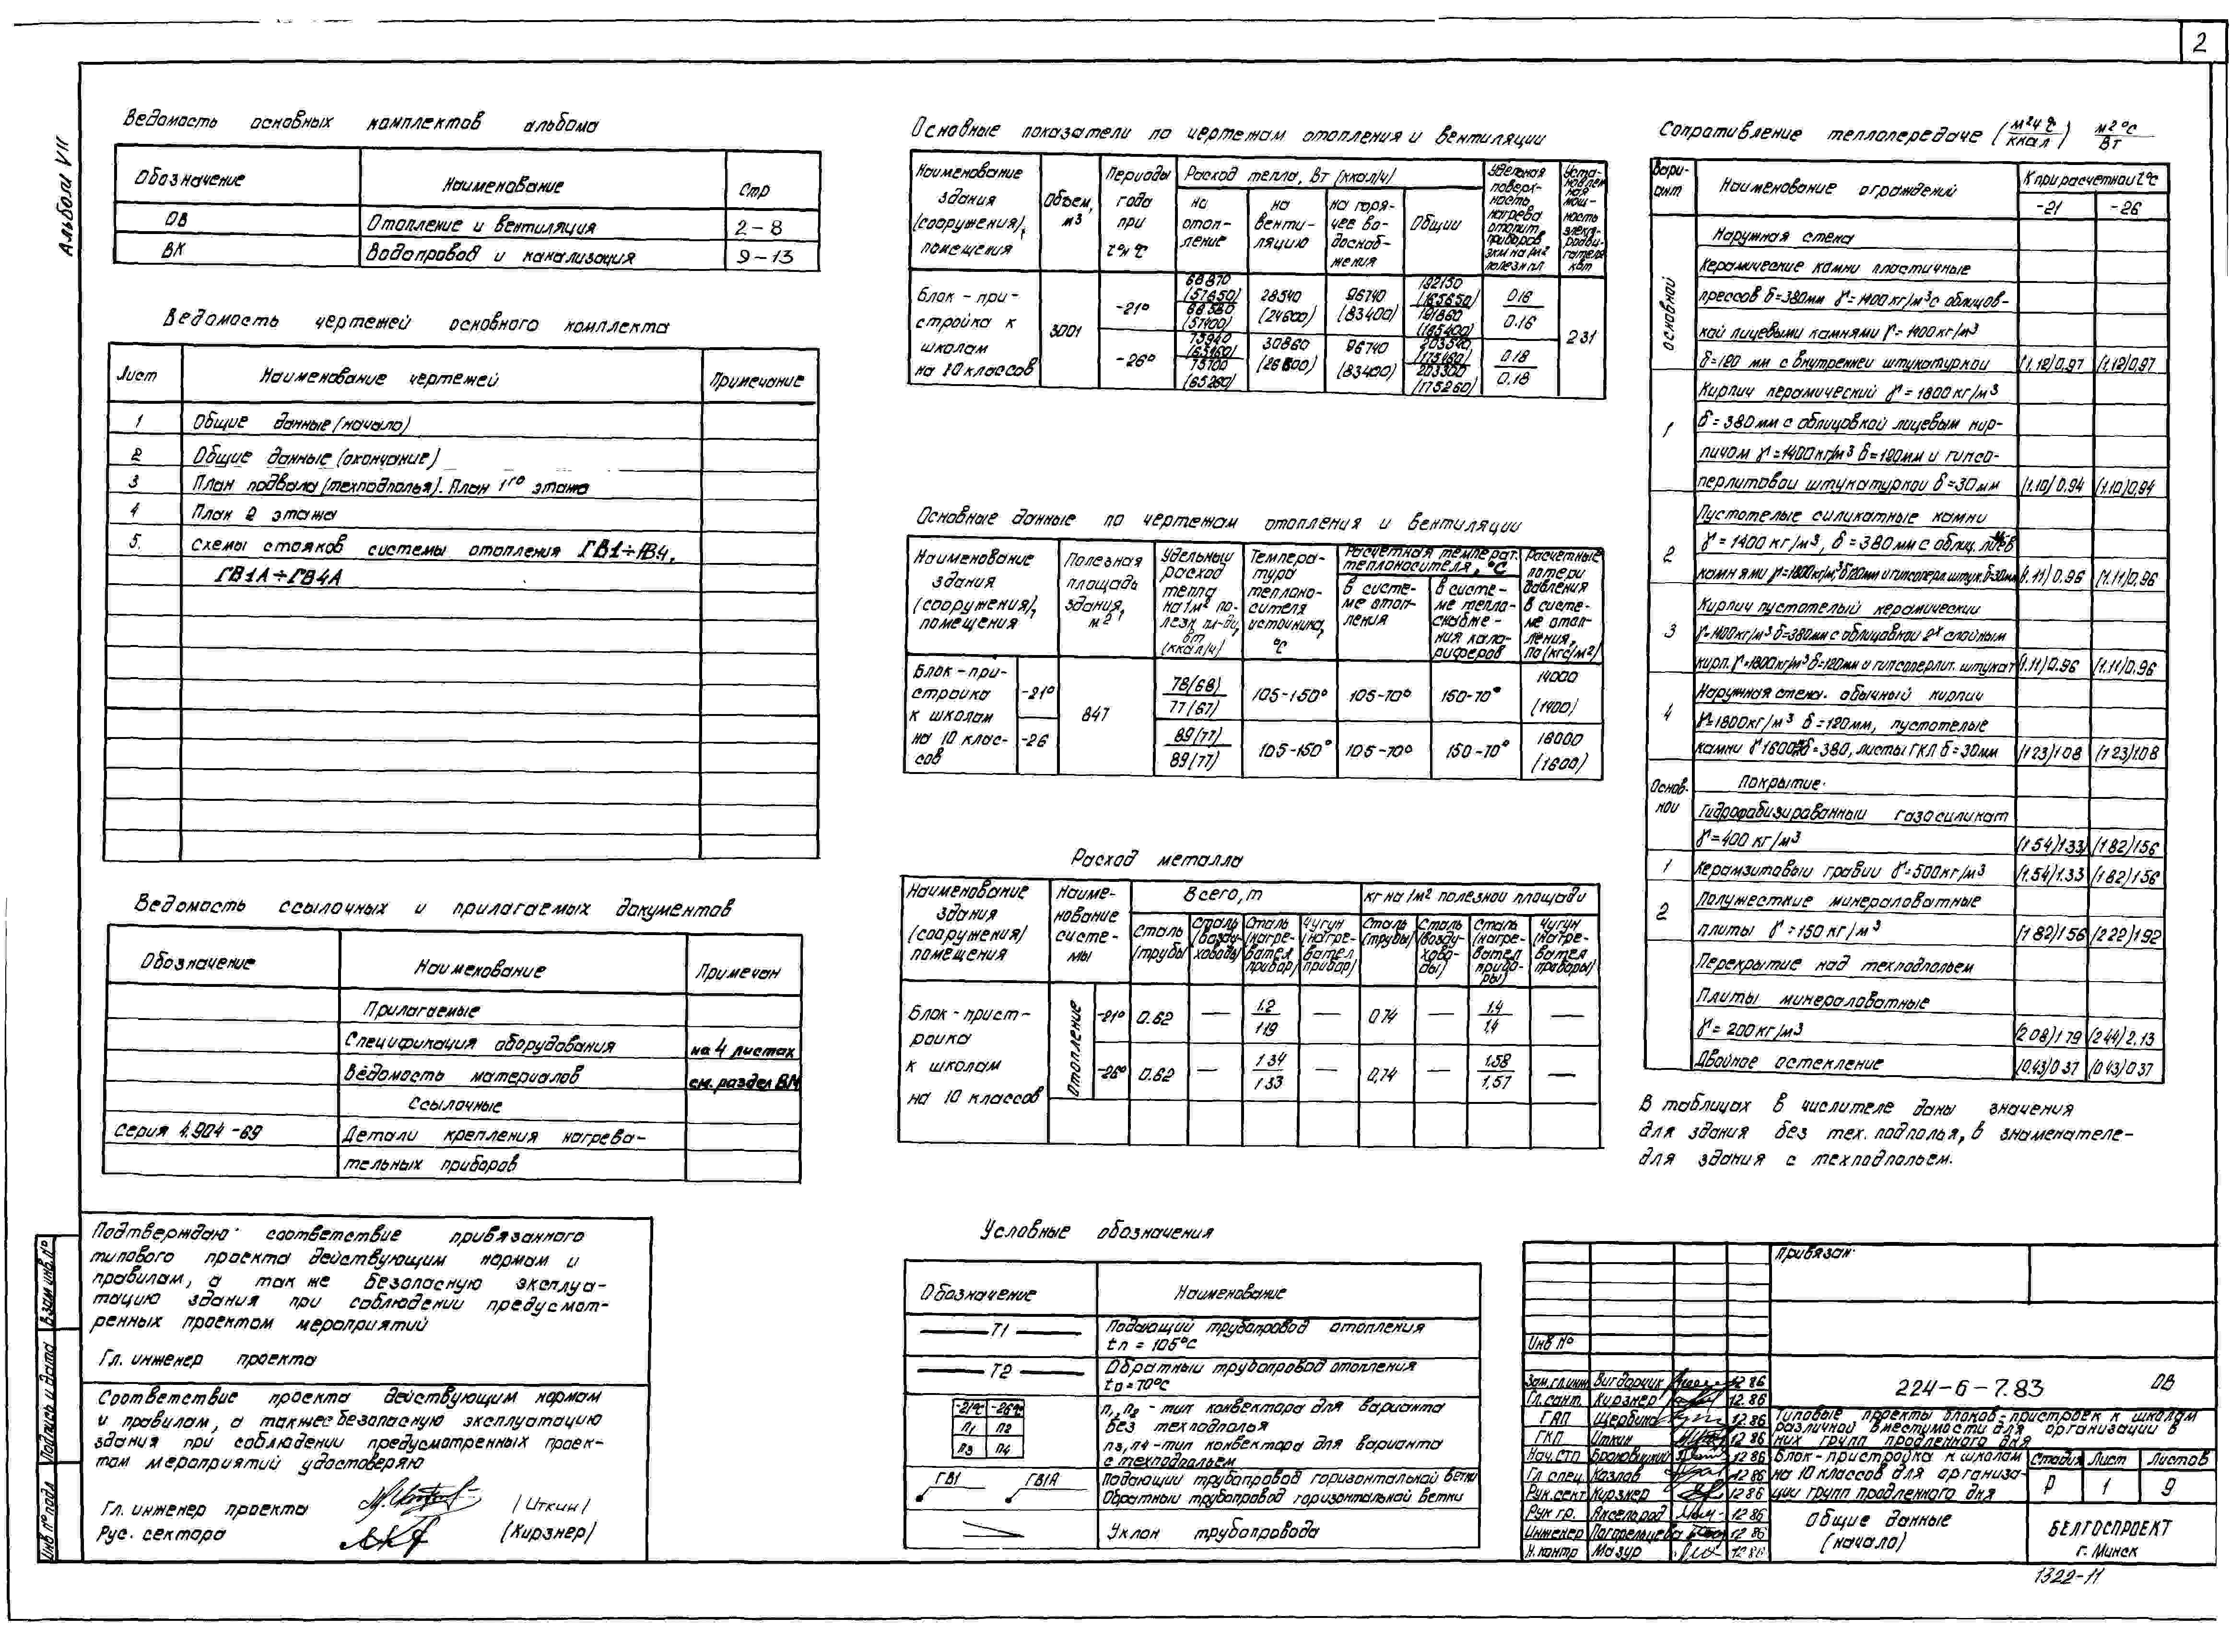 2
Альбом VII
Ведомость основных комплектов альбома
Обозначение Наименование Стр
ОВ Отопление и вентиляция 2-8
ВК Водопровод и канализация 9-13
Ведомость чертежей основного комплекта
Лист Наименование чертежей Примечание
1 Общие данные (начало)
2 Общие данные (окончание)
3 План подвала (техподполья). План 1го этажа
4 План 2 этажа
5. Схемы стояков системы отопления ГВ1÷ГВ4,
ГВ1А÷ГВ4А
Ведомость ссылочных и прилагаемых документов
Обозначение Наименование Примечан
Прилагаемые
Спецификация оборудования на 4 листах
Ведомость материалов см. раздел ВМ
Ссылочные
Серия 4.904-69 Детали крепления нагрева-
тельных приборов
Подтверждаю соответствие привязанного
типового проекта действующим нормам и
правилам, а так же безопасную эксплуа-
тацию здания при соблюдении предусмот-
ренных проектом мероприятий
Гл. инженер проекта
Соответствие проекта действующим нормам
и правилам, а также безопасную эксплуатацию
здания при соблюдении предусмотренных проек-
том мероприятий удостоверяю
Гл. инженер проекта (Иткин)
Рус. сектора (Кирзнер)
Взам инв. №
Подпись и дата
Инв № подл
Основные показатели по чертежам отопления и вентиляции
Наименование здания (сооружения), помещения
Объем, м3
Периоды года при tн °С
Расход тепла, Вт (ккал/ч)
на отопление
на вентиляцию
на горячее водоснабжения
Общий
Удельная поверхность нагрева отопит. приборов экм на м2 полезн пл
Установленная мощность электродвигателя квт
Блок-пристройка к школам на 10 классов
3001
-21° 68870 (57650) 28540 (24600) 96740 (83400) 182150 (165650) 0.18
68580 (57400) 191860 (165400) 0.16
231
-26° 75940 (65460) 30860 (26600) 96740 (83400) 203540 (175460) 0.18
75700 (65260) 203300 (175260) 0.18
Основные данные по чертежам отопления и вентиляции
Наименование здания (сооружения), помещения
Полезная площадь здания, м2
Удельный расход тепла на 1м2 полезн пл-ди, вт (ккал/ч)
Температура теплоносителя источника, °С
Расчетная температ. теплоносителя, °С
в системе отопления
в системе теплоснабжения калориферов
Расчетные потери давления в системе отопления, Па (кгс/м2)
Блок-пристройка к школам на 10 классов
847
-21° 78(68) 77(67) 105-150° 105-70° 150-70° 14000 (1400)
-26 89(77) 89(77) 105-150° 105-70° 150-70° 16000 (1600)
Расход металла
Наименование здания (сооружения) помещения
Наименование системы
Всего, т
кг на 1м2 полезной площади
Сталь (трубы)
Сталь (воздуховоды)
Сталь (нагревател прибор)
Чугун (нагревател прибор)
Сталь (трубы)
Сталь (воздуховоды)
Сталь (нагревател приборы)
Чугун (нагревател приборы)
Блок-пристройка к школам на 10 классов
Отопление
-21° 0.62 — 1.2 1.19 — 0.74 — 1.4 1.4 —
-26° 0.62 — 1.34 1.33 — 0,74 — 1.58 1,57 —
Условные обозначения
Обозначение Наименование
Т1 Подающий трубопровод отопления
tп = 105°С
Т2 Обратный трубопровод отопления
tо = 70°С
-21°С -26°С
п1 п2
п3 п4
п1, п2 - тип конвектора для варианта
без техподполья
п3, п4 - тип конвектора для варианта
с техподпольем
ГВ1 ГВ1А
Подающий трубопровод горизонтальной ветки
Обратный трубопровод горизонтальной ветки
Уклон трубопровода
Сопротивление теплопередаче (м2ч°С/ккал) м2°С/Вт
Вариант Наименование ограждений К при расчетной t°С
-21 -26
Основной
Наружная стена
Керамические камни пластичные
прессов δ=380мм γ=1400кг/м3 с облицов-
кой лицевыми камнями γ=1400кг/м3
δ=120 мм с внутренней штукатуркой (1,12)0,97 (1,12)0,97
1
Кирпич керамический γ=1800кг/м3
δ=380мм с облицовкой лицевым кир-
пичом γ=1400кг/м3 δ=120мм и гипсо-
перлитовой штукатуркой δ=30мм (1.10)0.94 (1.10)0.94
2
Пустотелые силикатные камни
γ=1400кг/м3, δ=380мм с облиц. лицев
камнями γ=1800кг/м3 δ120мм и гипсоперл. штук. δ=30мм (1.11)0.96 (1.11)0.96
3
Кирпич пустотелый керамический
γ=1400кг/м3 δ=380мм с облицовкой 2х слойным
кирп. γ=1800кг/м3 δ=120мм и гипсоперлит. штукат (1.11)0.96 (1.11)0.96
4
Наружная стена. обычный кирпич
γ=1800кг/м3 δ=120мм, пустотелые
камни γ 1600 δ=380, листы ГКЛ δ=30мм (123)108 (123)1.08
Основной
Покрытие
Гидрофобизированный газосиликат
γ=400 кг/м3 (154)133 (182)156
1 Керамзитовый гравий γ=500кг/м3 (1.54)1.33 (182)156
2 Полужесткие минераловатные
плиты γ=150 кг/м3 (182)156 (222)192
Перекрытие над техподпольем
Плиты минераловатные
γ=200кг/м3 (208)179 (244)2.13
Двойное остекление (0.43)037 (043)037
В таблицах в числителе даны значения
для здания без тех. подполья, в знаменателе-
для здания с техподпольем.
Привязан
Инв №
Зам.гл.инж Вигдорчик 12 86
Гл. сант. Кирзнер 12.86
ГАП Щербина 12.86
ГКП Иткин 12 86
Нач. СТП 12 86
Гл спец Козлов 12 86
Рук. сект Кирзнер 12 86
Рук гр. Аксельрод 12 86
Инженер 12 86
Н. контр Мазур 12 86
224-6-7.83 ОВ
Типовые проекты блоков-пристроек к школам
различной вместимости для организации в
них групп продленного дня
Блок-пристройка к школам
на 10 классов для организа-
ции групп продленного дня
Стадия Лист Листов
Р 1 9
Общие данные
(начало)
БЕЛГОСПРОЕКТ
г. Минск
1322-11